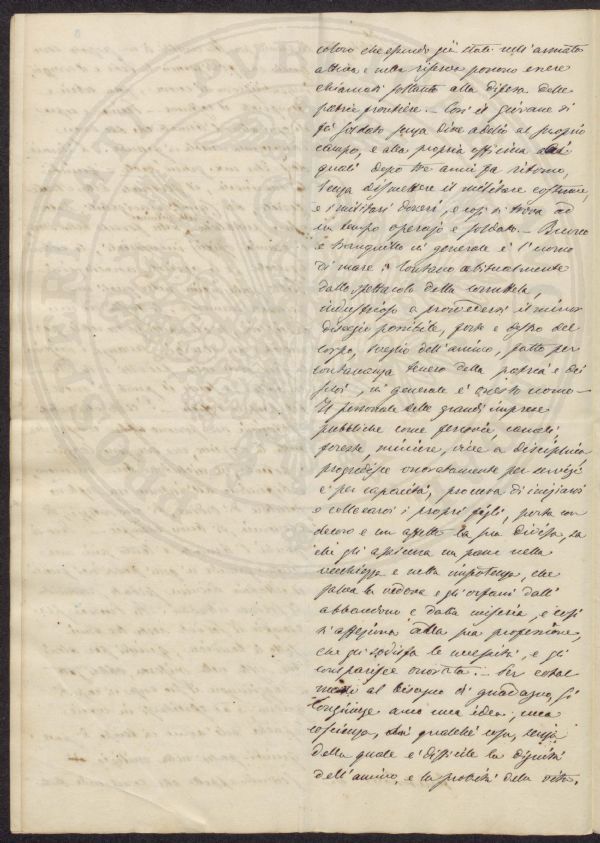 coloro che essendo già stati nell'armata
attiva e nella riserva possono essere
chiamati soltanto alla difesa delle
patrie frontiere. – Così il giovane si
fa soldato senza dire addio al proprio
campo, e alla propria officina ai
quali dopo tre anni fa ritorno,
senza dismettere il militare costume,
e i militari doveri, e così si trova ad
un tempo operajo e soldato. – Buono
e tranquillo in generale è l'uomo
di mare; lontano abitualmente
dallo spettacolo della corruttela,
industrioso a provvedersi il minor
disagio possibile, forte e destro del
corpo, sveglio dell'animo, fatto per
lontananza tenero della patria e dei
suoi, in generale è onesto uomo –
Il personale delle grandi imprese
pubbliche come ferrovie, canali,
foreste, miniere, vive a disciplina,
progredisce onoratamente per servizi
e per capacità, procura di iniziarvi
o collocarvi i propri figli, porta con
decoro e con affetto la sua divisa, sa
che gli assicura un pane nella
vecchiezza e nella impotenza, che
salva la vedova e gli orfani dall'
abbandono e dalla miseria, e così
si affeziona alla sua professione,
che gli sodisfa le necessità, e gli
comparisce onorata. – Per cotal
modo al bisogno di guadagno, si
congiunge una idea, una
coscienza, qualche cosa, senza
della quale è difficile la dignità
dell'animo, e la probità della vita.
PVRITATI